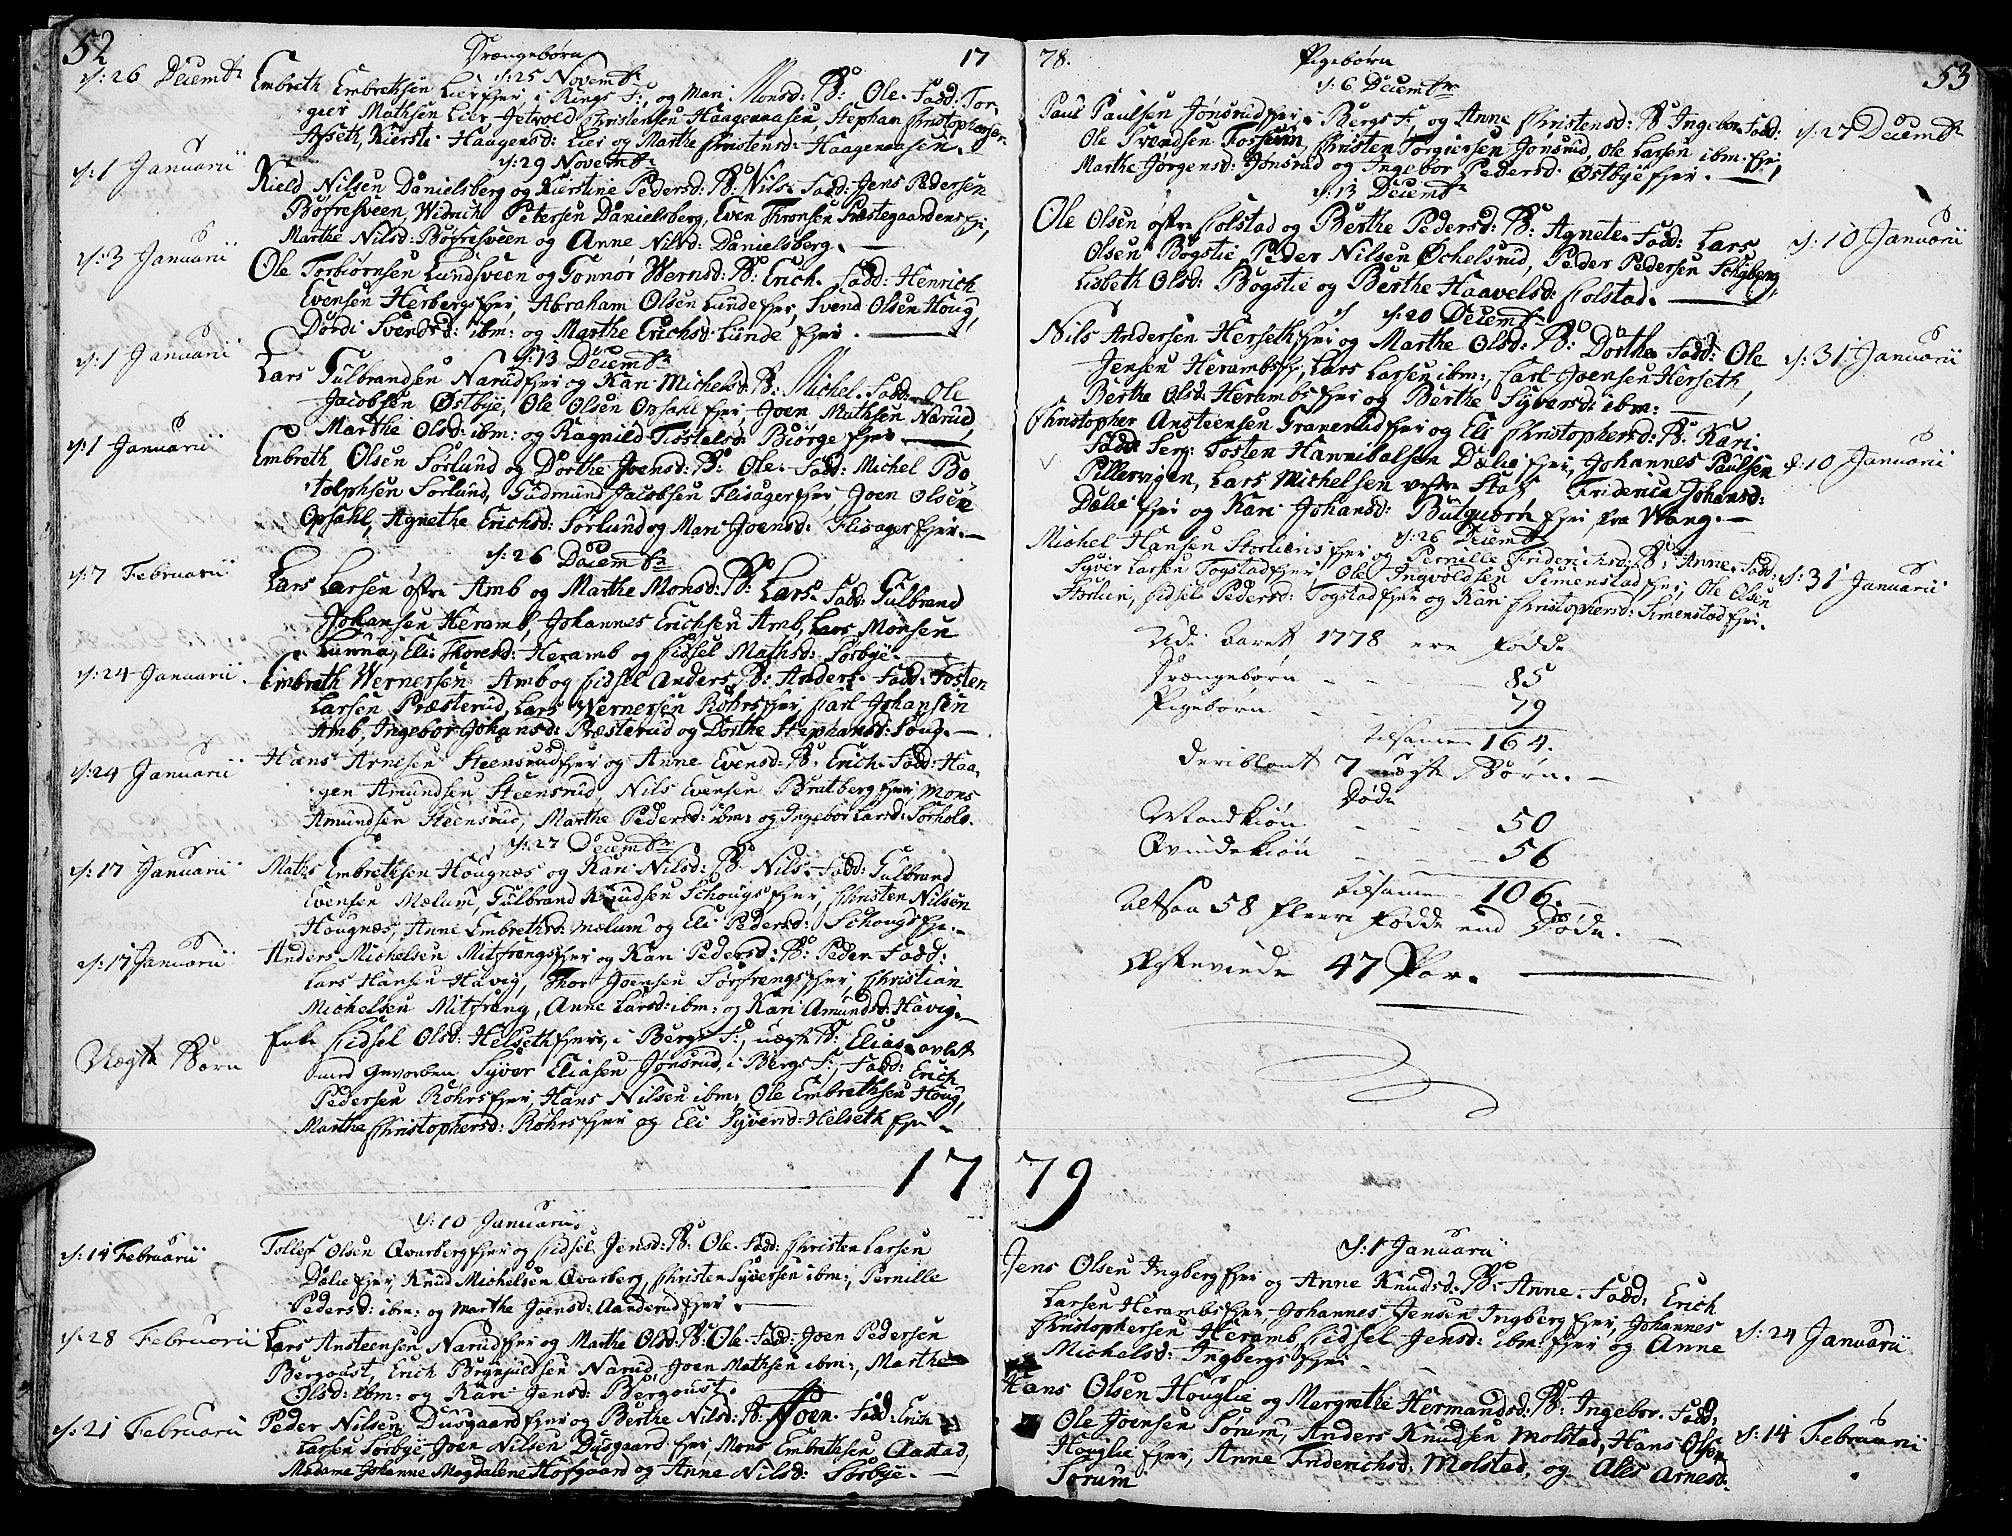 52
Drængebørn
17
d: 25 Novembr
d: 26 Decembr
Embreth Embrethsen Lier fjer i Rings S:, og Mari Monsd: B: Ole. Fadd: Tor-
gier Mathsen Lier Jetvold Christensen Haagenaasen, Stephan Christophersen
Aiseth, Kiersti Haagensd: Lier og Marthe Christensd: Haagenaasen.
d: 29 Novembr
d: 1 Januarii
Kield Nilsen Danielsberg og Kierstine Pedersd: B: Nils. Fadd: Jens Pedersen
Bøfresveen, Widrich Petersen Danielsberg, Even Thronsen Præstegaardens fje,
Marthe Nilsd: Bøfresveen og Anne Nilsd: Danielsberg.
d: 3 Januarii
Ole Torbiørnsen Lundsveen og Gonnor Wernsd: B: Erich. Fadd: Henrich
Evensen Herbergsfjer, Abraham Olsen Lunde fjer, Svend Olsen Houg,
Dordi Svendsd: ibm: og Marthe Erichsd: Lunde fjer.
d: 13 Decembr
d: 1 Januarii
Lars Gulbrandsen Narud fjer og Kari Michelsd: B: Michel. Fadd: Ole
Jacobsen Østbye, Ole Olsen Opsahl fjer Joen Mathsen Narud,
Marthe Olsd: ibm: og Ragnild Tostelsd: Biørge fjer.
d: 1 Januarii
Embreth Olsen Sørlund og Dorthe Joensd: B: Ole. Fadd: Michel Bo-
tolphsen Sørlund, Gudmund Jacobsen Flisager fjer, Joen Olsen
Opsahl, Agnethe Erichsd: Sørlund og Mari Joensd: Flisager fjer.
d: 26 Decembr
d: 7 Februarii
Lars Larsen østre Amb og Marthe Monsd: B: Lars. Fadd: Gulbrand
Johansen Heramb, Johannes Erichsen Amb, Lars Monsen
Lunna, Eli Thoresd: Heramb og Sidsel Mathsd: Sørbye.
d: 24 Januarii
Embreth Wernersen Amb og Sidsel Anders, B: Anders. Fadd: Tosten
Larsen Præsterud, Lars Wernersen Røhrs fjer, Carl Johansen
Amb, Ingebor Johansd: Præsterud og Dorthe Stephansd: Houg.
d: 24 Januarii
Hans Arnesen Steensrud fjer og Anne Evensd: B: Erich. Fadd: Haa-
gen Amundsen Steensrud, Nils Evensen Bratberg fjer Mons
Amundsen Steensrud, Marthe Pedersd: ibm: og Ingebor Larsd: Sørhole.
d: 27 Decembr
d: 17 Januarii
Maths Embrethsen Hougnæs og Kari Nilsd: B: Nils. Fadd: Gulbrand
Evensen Mælum, Gulbrand Knudsen Schougs fjer, Christen Nilsen
Hougnæs, Anne Embrethsd: Mælum og Eli Pedersd: Schougs fje.
d: 17 Januarii
Anders Michelsen Mitfrengs fjer og Kari Pedersd: B: Peder Fadd:
Lars Hansen Havig, Thor Joensen Sørfrengs fjer, Christian
Michelsen Mitfreng, Anne Larsd: ibm: og Kari Amundsd: Havig.
Uægte Børn
Enke Sidsel Olsd: Helseth fjer, i Bergs S:, uægte B: Elias avlet
med Syver Eliasen Jønsrud, i Bergs S:, Fadd: Erich
Pedersen Røhrs fjer, Hans Nilsen ibm, Ole Embrethsen Houg,
Marthe Christophersd: Røhrs fjer og Eli Syversd: Helseth fje.
17
d: 10 Januarii
d: 14 Februarii
Tollef Olsen Qvarberg fjer og Sidsel Jensd: B: Ole. Fadd: Christen Larsen
Dælie fjer, Knud Michelsen Qvarberg, Christen Syversen ibm:, Pernille
Pedersd: ibm: og Marthe Joensd: Aanderud fjer.
d: 28 Februarii
Lars Ansteensen Narud fjer og Marthe Olsd: B: Ole. Fadd: Joen Pedersen
Bergoust, Erich Brynjuldsen Narud, Joen Mathsen ibm:, Marthe
Olsd: ibm: og Kari Jensd: Bergoust.
d: 21 Februarii
Peder Nilsen Dusgaard fjer og Berthe Nilsd: B: Joen. Fadd: Erich
Larsen Sørbye, Joen Nilsen Dusgaard fjer, Mons Embrethsen Aastad,
Madame Johanne Magdalene Hofgaard og Anne Nilsd: Sørbye.
78.
Pigebørn
53
d: 6 Decembr
Paul Paulsen Jønsrud fjer i Bergs S:, og Anne Christensd: B: Ingebor. Fadd:
d: 27 Decembr
Ole Svendsen Torseun, Christen Torgiersen Jonsrud, Ole Larsen ibm. fje,
Marthe Jorgensd: Jonsrud og Ingebor Pedersd: Østbye fjer.
d: 13 Decembr
Ole Olsen østre Colstad og Berthe Pedersd: B: Agnete. Fadd: Lars
d: 10 Januarii
Olsen Bøgstie Peder Nilsen Øchelsrud, Peder Pedersen Schyberg,
Lisbeth Olsd: Bøgstie og Berthe Haavelsd: Colstad.
d: 20 Decembr
Nils Andersen Herseth fjer og Marthe Olsd: B: Dorthe. Fadd: Ole
d: 31 Januarii
Jensen Herambs fje, Lars Larsen ibm:, Carl Joensen Herseth,
Berthe Olsd: Herambs fjer og Berthe Syversd: ibm:
Christopher Ansteensen Granerud fjer og Eli Christophersd: B: Kari.
Fadd: Serg: Tosten Hannibalsen Dælie fjer, Johannes Paulsen
d: 10 Januarii
Pillervigen, Lars Michelsen vestre Stas Friderica Johansd:
Dælie fjer og Kari Johansd: Bulquarn fjer fra Wang.
d: 26 Decembr
Michel Hansen Storliens fjer og Pernille Friderichsd: B: Anne. Fadd:
d: 31 Januarii
Syver Larsen Togstad fjer, Ole Ingvoldsen Simenstad fjer, Ole Olsen
Storlien, Sidsel Pedersd: Togstad fjer og Kari Christophersd: Simenstad fjer.
Udi Aaret 1778 ere Fødde
Drængebørn - - - 85
Pigebørn - - - 79
tilsamen 164.
deriblant 7 uægte Børn.
Døde
Mandkiøn - - - 50
Qvindekiøn - - - 56
tilsamen 106.
Altsaa 58 fleere Fødde end Døde.
Ægteviede 47 Par.
79
d: 1 Januarii
Jens Olsen Ingberg fjer og Anne Knudsd: B: Anne. Fadd: Erich
Larsen Herambs fjer, Johannes Jensen Ingberg fjer, Johannes
d: 24 Januarii
Christophersen Heramb, Sidsel Jensd: ibm: fjer og Anne
Michelsd: Ingbergs fjer
Hans Olsen Houglie og Margrethe Hermandsd: B: Ingebor. Fadd:
d: 14 Februarii
Ole Joensen Sørum, Anders Knudsen Molstad, Hans Olsen
Houglie fjer, Anne Friderichsd: Molstad, og Ales Arnesd:
Sørum